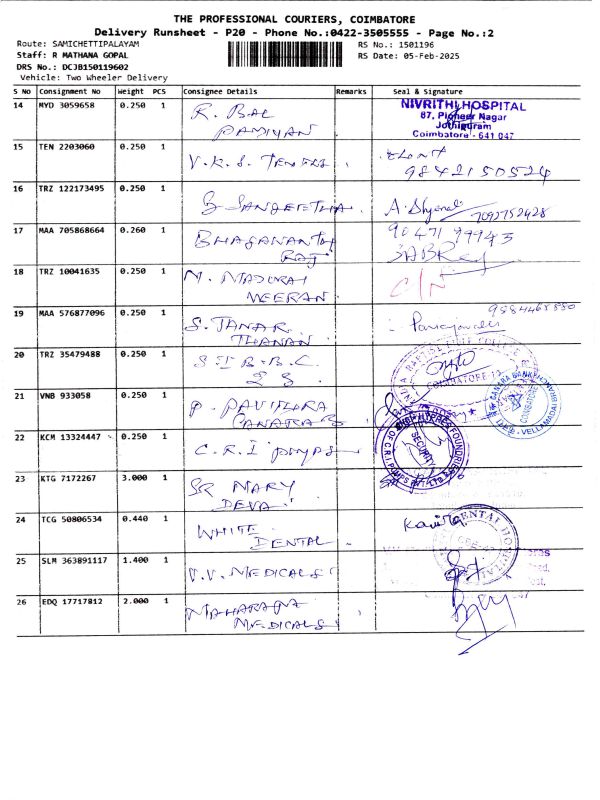 THE PROFESSIONAL COURIERS, COIMBATORE
Delivery Runsheet - P20 - Phone No.:0422-3505555 - Page No.:2
Route: SAMICHETTIPALAYAM
RS No.: 1501196
Staff: R MATHANA GOPAL
RS Date: 05-Feb-2025
DRS No.: DCJB150119602
Vehicle: Two Wheeler Delivery
S No Consignment No Weight PCS Consignee Details Remarks Seal & Signature
14 MYD 3059658 0.250 1 R. BAL
NIVRITHI HOSPITAL
67, Pioneer Nagar
Jothipuram
Coimbatore - 641 047
15 TEN 2203060 0.250 1 V.K.S. 
9842150524
16 TRZ 122173495 0.250 1 S. SANGEETHA
7092752428
17 MAA 705868664 0.260 1
18 TRZ 10041635 0.250 1 M. MADURAI
VEERAN
19 MAA 576877096 0.250 1 S. TANAR
THANAN
20 TRZ 35479488 0.250 1
COIMBATORE
21 VNB 933058 0.250 1 P. 
CANARA B
CANARA BANK
COIMBATORE
22 KCM 13324447 0.250 1 C.R.I PUMPS
SECURITY
23 KTG 7172267 3.000 1 SR MARY
DEVA
24 TCG 50806534 0.440 1 WHITE
DENTAL
DENTAL HOSPITAL
25 SLM 363891117 1.400 1 V.V. MEDICALS
26 EDQ 17717812 2.000 1 MAHARANI
MEDICALS